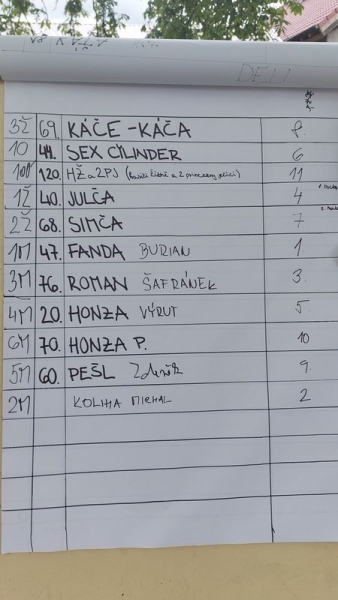 DĚLI
3Ž 69. KÁČE-KÁČA 8.
10 44. SEX CYLINDER 6
10M 120. HŽ a 2PJ 11
1Ž 40. JULČA 4
2Ž 68. SIMČA 7
1M 47. FANDA BURIAN 1.
3M 76. ROMAN ŠAFRÁNEK 3.
4M 20. HONZA VÝRUT 5.
6M 70. HONZA P. 10
5M 60. PEŠL Zdeněk 9.
2M KOLIHA MICHAL 2